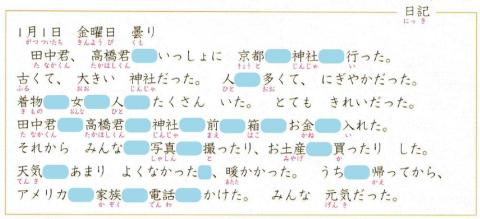 日記
にっき
1月1日 金曜日 曇り
がつついたち きんようび くも
田中君、高橋君 いっしょに 京都 神社 行った。
たなかくん たかはしくん きょうと じんじゃ い
古くて、大きい 神社だった。 人 多くて、にぎやかだった。
ふる おお じんじゃ ひと おお
着物 女 人 たくさん いた。 とても きれいだった。
きもの おんな ひと
田中君 高橋君 神社 前 箱 お金 入れた。
たなかくん たかはしくん じんじゃ まえ はこ かね い
それから みんな 写真 撮ったり、お土産 買ったり した。
しゃしん と みやげ か
天気 あまり よくなかった 、暖かかった。 うち 帰ってから、
てんき あたた かえ
アメリカ 家族 電話 かけた。 みんな 元気だった。
かぞく でんわ げんき